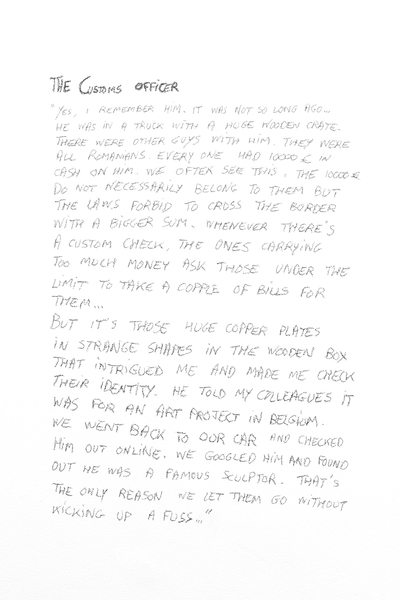 THE CUSTOMS OFFICER
"YES, I REMEMBER HIM. IT WAS NOT SO LONG AGO...
HE WAS IN A TRUCK WITH A HUGE WOODEN CRATE.
THERE WERE OTHER GUYS WITH HIM. THEY WERE
ALL ROMANIANS. EVERY ONE HAD 10000 € IN
CASH ON HIM. WE OFTER SEE THIS. THE 10000 €
DO NOT NECESSARILY BELONG TO THEM BUT
THE LAWS FORBID TO CROSS THE BORDER
WITH A BIGGER SUM. WHENEVER THERE'S
A CUSTOM CHECK, THE ONES CARRYING
TOO MUCH MONEY ASK THOSE UNDER THE
LIMIT TO TAKE A COPPLE OF BILLS FOR
THEM...
BUT IT'S THOSE HUGE COPPER PLATES
IN STRANGE SHAPES IN THE WOODEN BOX
THAT INTRIGUED ME AND MADE ME CHECK
THEIR IDENTITY. HE TOLD MY COLLEAGUES IT
WAS FOR AN ART PROJECT IN BELGIUM.
WE WENT BACK TO OUR CAR AND CHECKED
HIM OUT ONLINE. WE GOOGLED HIM AND FOUND
OUT HE WAS A FAMOUS SCULPTOR. THAT'S
THE ONLY REASON WE LET THEM GO WITHOUT
KICKING UP A FUSS..."